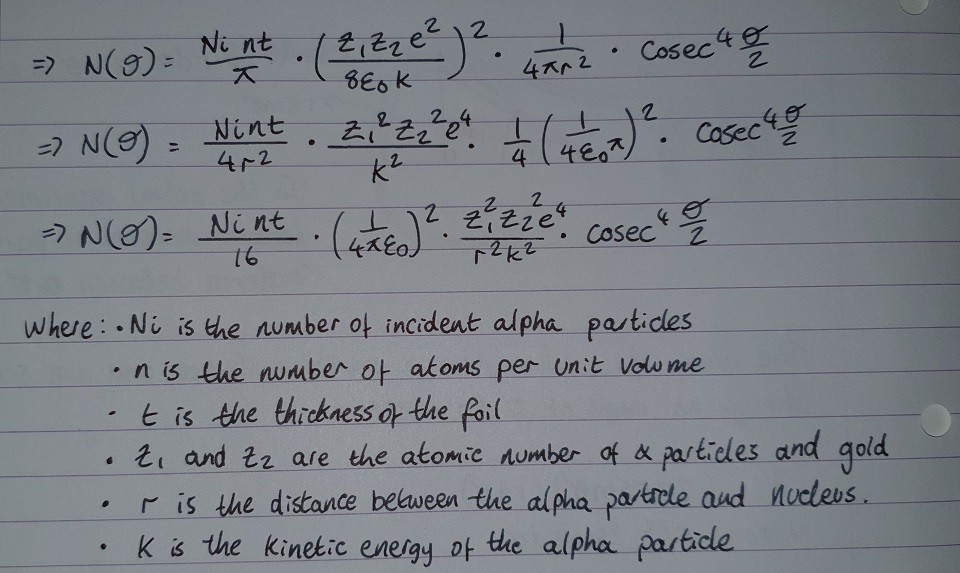 ⇒ N(θ) = Ni nt/π · (z₁z₂e²/8ε₀k)² · 1/4πr² · cosec⁴ θ/2
⇒ N(θ) = Nint/4r² · z₁²z₂²e⁴/k² · 1/4 (1/4ε₀π)² · cosec⁴ θ/2
⇒ N(θ) = Nint/16 · (1/4πε₀)² · z₁²z₂²e⁴/r²k² · cosec⁴ θ/2
Where: · Ni is the number of incident alpha particles
· n is the number of atoms per unit volume
· t is the thickness of the foil
· z₁ and z₂ are the atomic number of α particles and gold
· r is the distance between the alpha particle and nucleus.
· K is the kinetic energy of the alpha particle